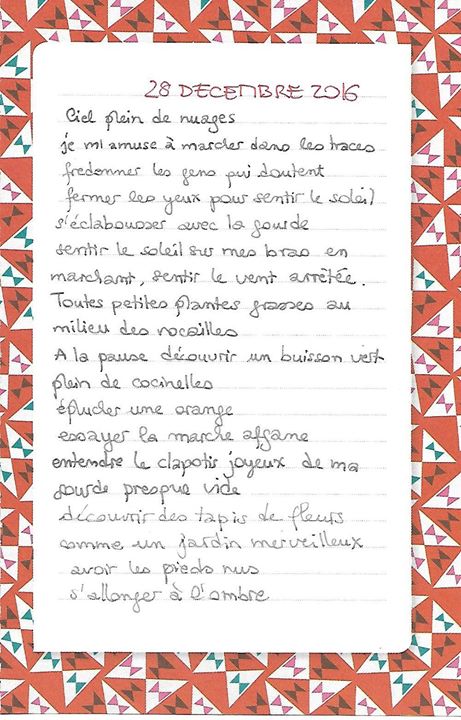 28 DECEMBRE 2016
Ciel plein de nuages
je m'amuse à marcher dans les traces
fredonner les gens qui doutent
fermer les yeux pour sentir le soleil
s'éclabousser avec la gourde
sentir le soleil sur mes bras en
marchant, sentir le vent arrêtée.
Toutes petites plantes grasses au
milieu des rocailles
A la pause découvrir un buisson vert
plein de cocinelles
éplucher une orange
essayer la marche afgane
entendre le clapotis joyeux de ma
gourde presque vide
découvrir des tapis de fleurs
comme un jardin merveilleux
avoir les pieds nus
s'allonger à l'ombre